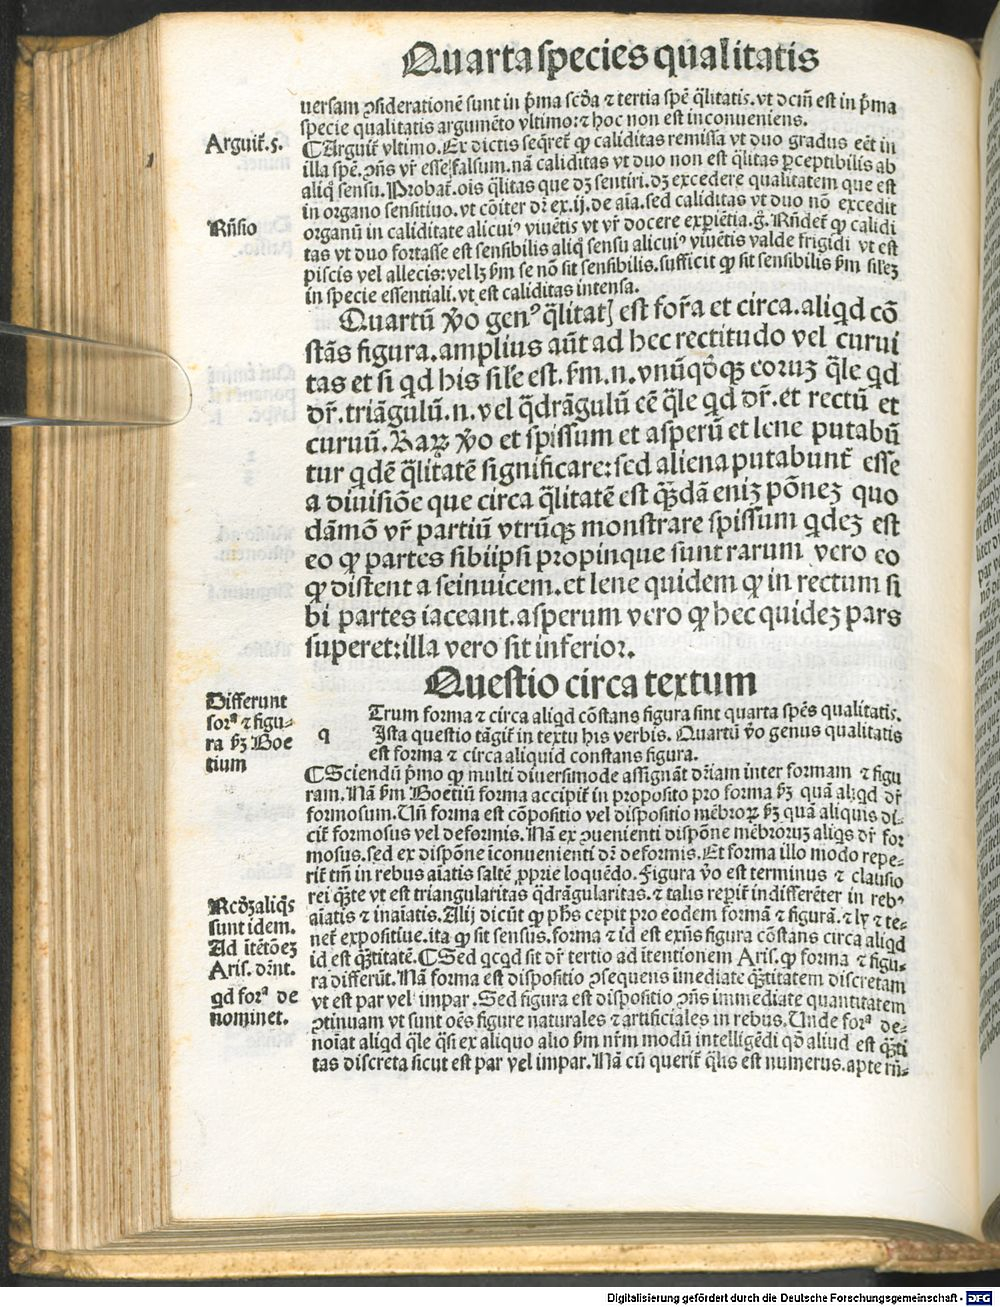 Quarta species qualitatis
uersam ↄsiderationē sunt in p̄ma scd̄a ⁊ tertia spē q̄litatis. vt dcm̄ est in p̄ma
specie qualitatis argumēto vltimo: ⁊ hoc non est inconueniens.
Arguit̄. 5.
¶Arguit̄ vltimo. Ex dictis seqret̄ ꝙ caliditas remissa vt duo gradus eēt in
illa spē. ↄn̄s vr̄ esse falsum. nā caliditas vt duo non est q̄litas ꝑceptibilis ab
aliq̄ sensu. Probat̄. ois q̄litas que dꝫ sentiri. dꝫ excedere qualitatem que est
in organo sensitiuo. vt cōiter dr̄ ex .ij. de aīa. sed caliditas vt duo nō excedit
Rn̄sio
organū in caliditate alicuiꝰ viuētis vt vr̄ docere exꝑiētia. g̊. Rn̄det̄ ꝙ calidi
tas vt duo fortasse est sensibilis aliq̄ sensu alicuiꝰ viuētis valde frigidi vt est
piscis vel allecis: vel lꝫ ẜm se nō sit sensibilis. sufficit ꝙ sit sensibilis ẜm sil'eꝫ
in specie essentiali. vt est caliditas intensa.
Quartū v̊o genꝰ q̄litat̄ est for̄a et circa. aliqd cō
stās figura. amplius aūt ad hec rectitudo vel curui
tas et si qd his sil'e est. ẜm. n. vnūqd̊qꝫ eoruꝫ q̄le qd
dr̄. triāgulū. n. vel q̄drāgulū eē q̄le qd dr̄. et rectū et
curuū. Raꝝ v̊o et spissum et asperū et lene putabū
tur qdē q̄litatē significare: sed aliena putabunt̄ esse
a diuisiōe que circa q̄litatē est q̄ꝫdā eniꝫ pōneꝫ quo
dāmō vr̄ partiū vtrūqꝫ monstrare spissum qdeꝫ est
eo ꝙ partes sibiipsi propinque sunt rarum vero eo
ꝙ distent a seinuicem. et lene quidem ꝙ in rectum si
bi partes iaceant. asperum vero ꝙ hec quideꝫ pars
superet: illa vero sit inferior.
Questio circa textum
Differunt
forᵃ ⁊ figu-
ra ẜꝫ Boe
tium
q
Trum forma ⁊ circa aliqd cōstans figura sint quarta spēs qualitatis.
Ista questio tāgit̄ in textu his verbis. Quartū v̊o genus qualitatis
est forma ⁊ circa aliquid constans figura.
¶Sciendū p̄mo ꝙ multi diuersimode assignāt dr̄iam inter formam ⁊ figu
ram. Nā ẜm Boetiū forma accipit̄ in proposito pro forma ẜꝫ quā aliqd dr̄
formosum. Un̄ forma est cōpositio vel dispositio mēbroꝝ ẜꝫ quā aliquis di-
cit̄ formosus vel deformis. Nā ex ↄuenienti dispōne mēbroruꝫ aliqs dr̄ for
mosus. sed ex dispōne īconuenienti dr̄ deformis. Et forma illo modo repe-
rit̄ tm̄ in rebus aīatis saltē ꝓprie loquēdo. Figura v̊o est terminus ⁊ clausio
rei q̄ꝫte vt est triangularitas q̄drāgularitas. ⁊ talis reꝑit̄ indifferēter in rebꝰ
Rcd̄ꝫ aliq̄s
sunt idem.
Ad ītētōeꝫ
Aris. dr̄nt.
qd forᵃ de
nominet.
aīatis ⁊ inaīatis. Alij dicūt ꝙ ph̄s cepit pro eodem formā ⁊ figurā. ⁊ ly ⁊ te-
net̄ expositiue. ita ꝙ sit sensus. forma ⁊ id est exn̄s figura cōstans circa aliqd
id est q̄ꝫtitatē. ¶Sed qcqd sit dr̄ tertio ad ītentionem Aris. ꝙ forma ⁊ figu-
ra differūt. Nā forma est dispositio ↄsequens īmediate q̄ꝫtitatem discretam
vt est par vel impar. Sed figura est dispositio ↄn̄s immediate quantitatem
ↄtinuam vt sunt oēs figure naturales ⁊ artificiales in rebus. Unde forᵃ de-
noīat aliqd q̄le q̄si ex aliquo alio ẜm nr̄m modū intelligēdi qd̊ aliud est q̄ꝫti
tas discreta sicut est par vel impar. Nā cū querit̄ q̄lis est numerus. apte rn̄-
Digitalisierung gefördert durch die Deutsche Forschungsgemeinschaft - DFG